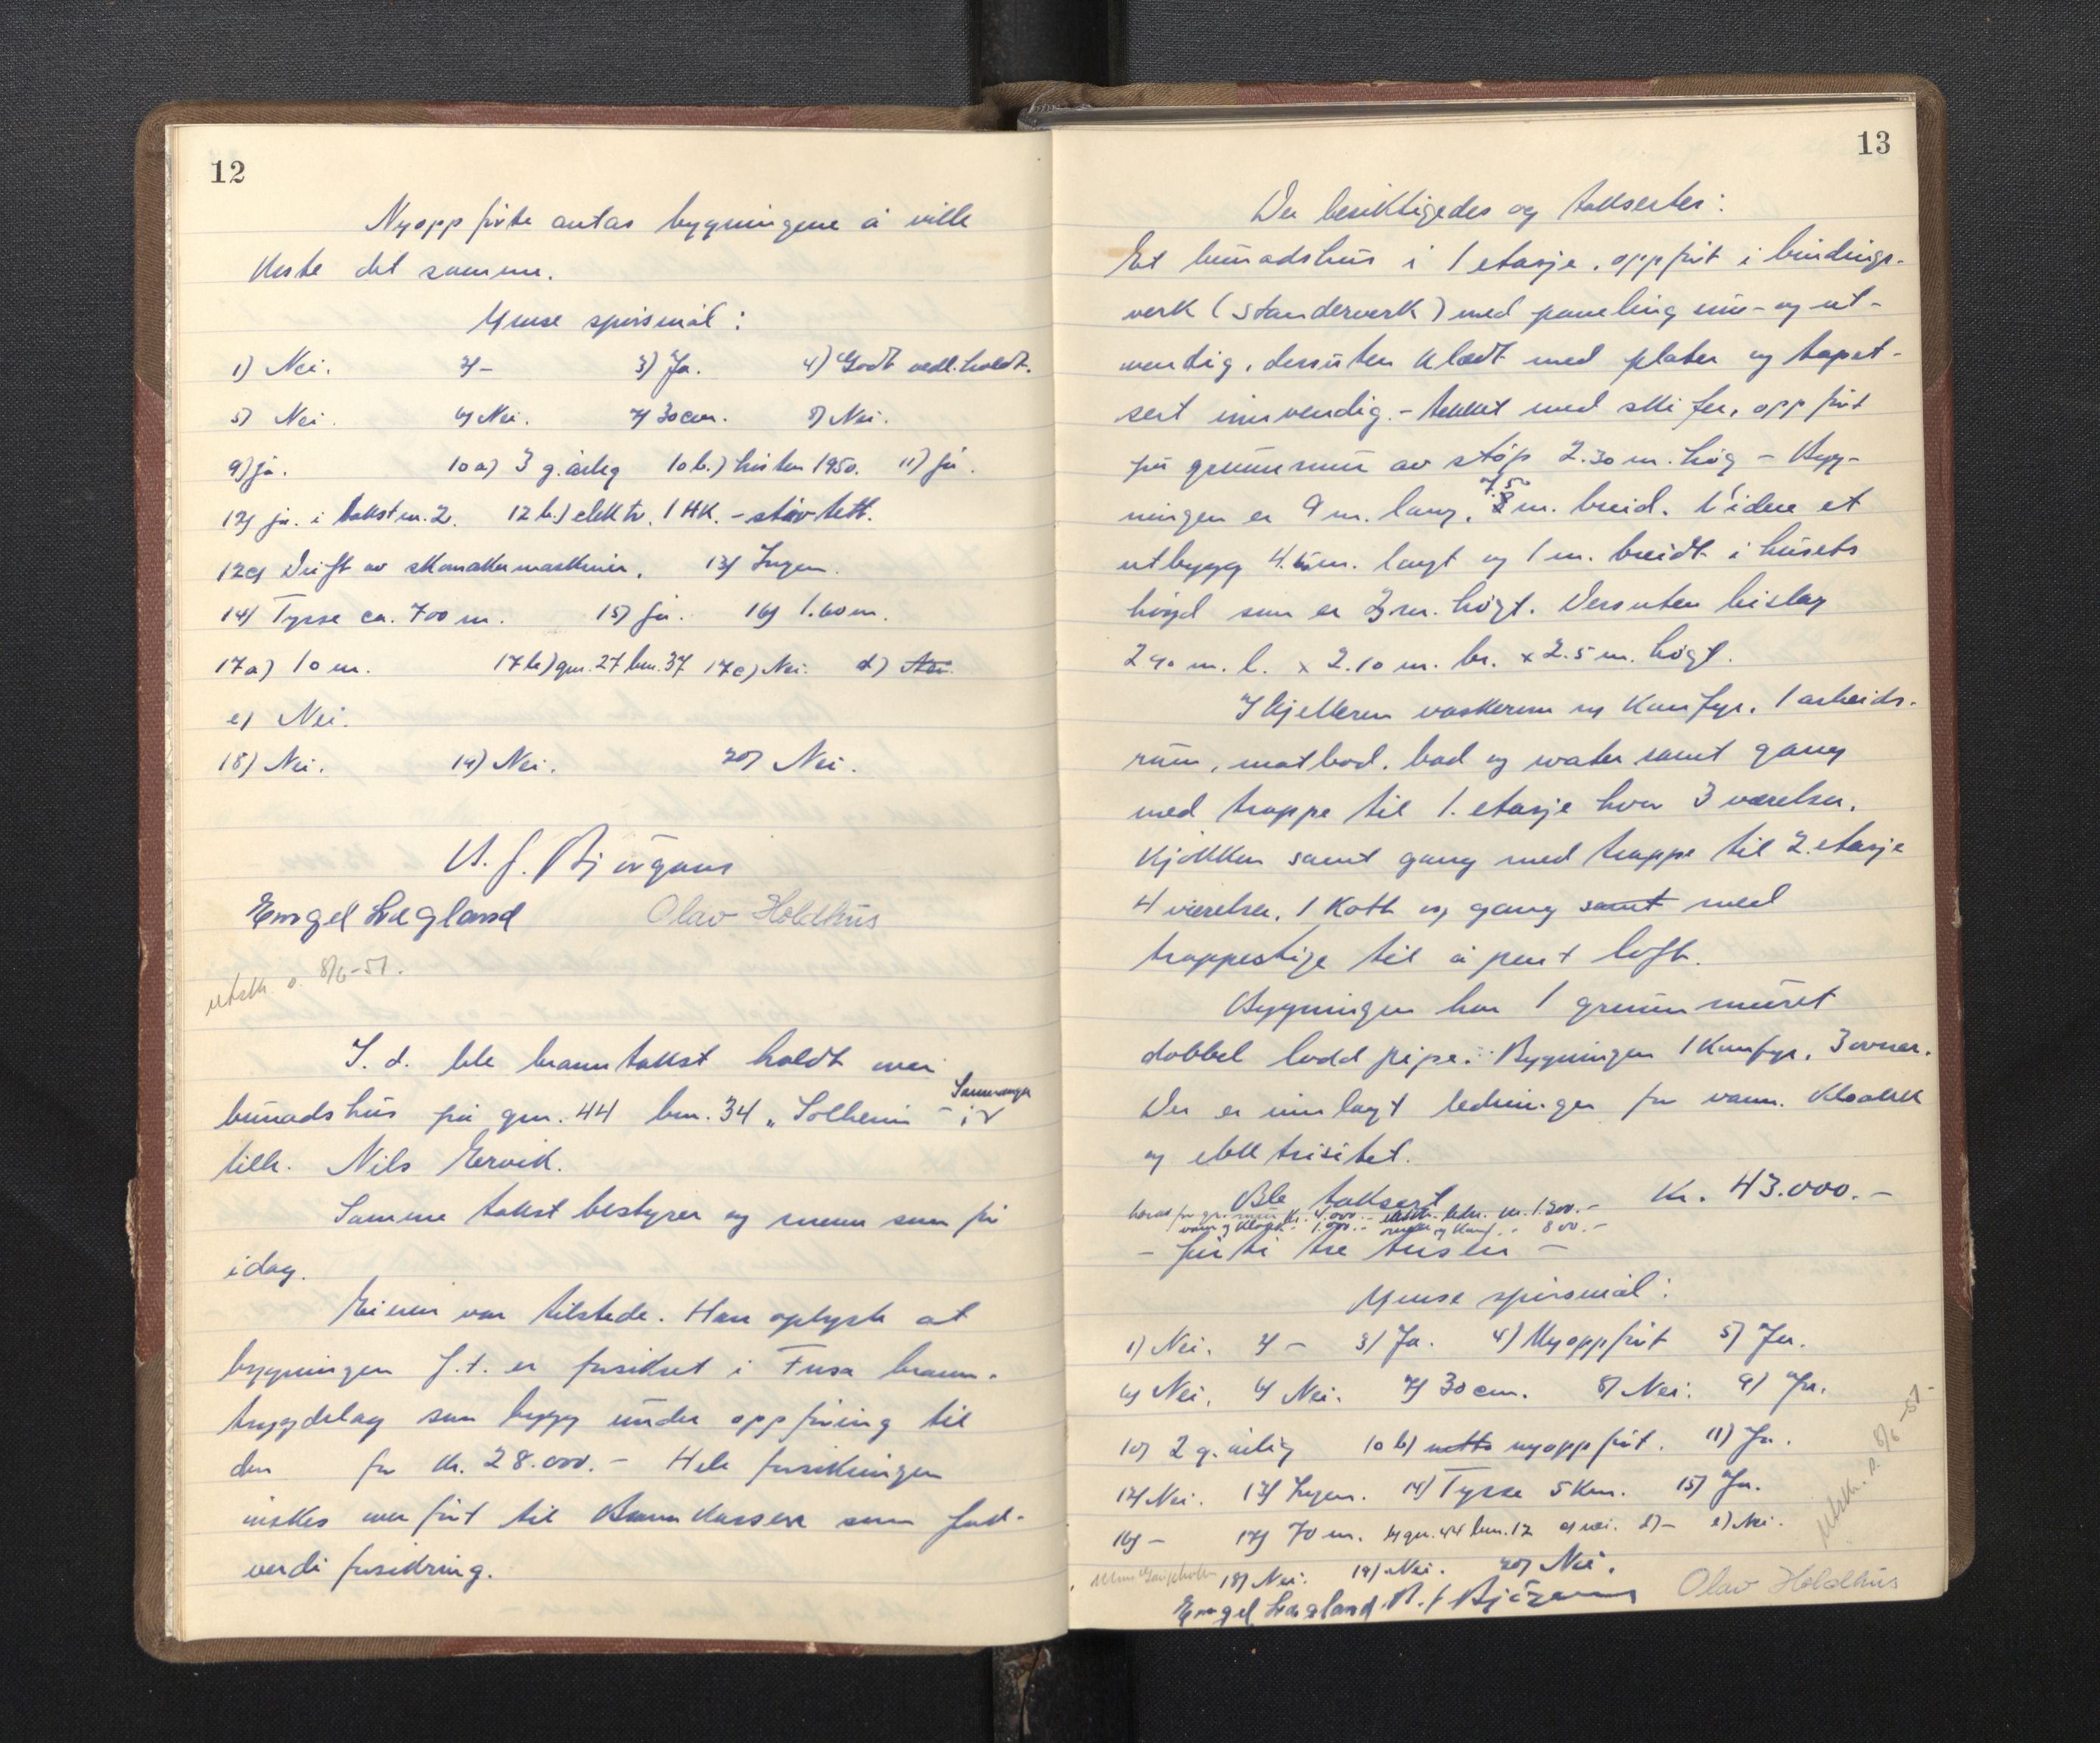 12
Nyoppførte antas bygningene å ville
koste det samme.
Ymse spørsmål:
1) Nei. 2) – 3) Ja. 4) Godt vedl.holdt.
5) Nei. 6) Nei. 7) 30 cm. 8) Nei.
9) ja. 10 a) 3 g. årleg 10 b.) hösten 1950. 11) ja.
12) ja. i takst nr. 2. 12 b.) elektr. 1 HK. – støvtett.
12c) Drift av skomakermaskiner. 13) Ingen.
14) Tysse ca. 700 m. 15) ja. 16) 1.60 m.
17a) 10 m. 17 b.) gnr. 27 bnr. 37 17c) Nei. d) Nei.
e) Nei.
18) Nei. 19) Nei. 20) Nei.
Engel Lægland Olav Holdhus
utskr. s. 8/6-51.
S. d. ble branntakst holdt over
bunadshus på gnr. 44 bnr. 34 „Solheim" i Samnanger
tilh. Nils Ervik.
Samme takstbestyrer og menn som før
idag.
Eieren var tilstede. Han oplyste at
bygningen f.t. er forsikret i Fusa brann-
trygdelag som bygg under oppføring til
den for kr. 28.000.– Hele forsikringen
ønskes overført til Brannkassen som full-
verdi forsikring.
13
Der besiktigedes og taksertes:
Et bunadshus i 1 etasje, oppført i bindings-
verk (standerverk) med paneling inn- og ut-
vendig, dessuten klædt med plater og tapet-
sert innvendig. – tekket med skifer, oppført
på grunnmur av støp 2.30 m. høg – Byg-
ningen er 9 m. lang, 7.50 m. breid. Videre et
utbygg 4.5 m. langt og 1 m. breidt i husets
høgd som er 3 m. høgt. Dessuten bislag
2 90 m. l. x 2.10 m. br. x 2.5 m. høgt.
I kjelleren vaskerum og komfyr, 1 arbeids-
rum, matbod, bad og water samt gang
med trappe til 1. etasje hvor 3 værelser,
kjøkken samt gang med trappe til 2. etasje
4 værelser, 1 kott og gang samt med
trappestige til åpent loft.
Bygningen har 1 grunnmuret
dobbel lodd pipe. Bygningen 1 komfyr, 3 ovner.
Der er innlagt ledninger for vann, kloakk
og elektrisitet.
Ble taksert Kr. 43.000.–
herav for gr. mur kr. 4.000.– elektr. ledn. kr. 1.200.–
vann og kloakk 1.000.– ovner og komf. " 800.–
– førti tre tusen –
Ymse spørsmål:
1) Nei. 2) – 3) Ja. 4) Nyoppført 5) Ja.
6) Nei. 6) Nei. 7) 30 cm. 8) Nei. 9) Ja.
10) 2 g. årlig 10 b) nyoppført. 11) Ja.
12) Nei. 13) Ingen. 14) Tysse 5 km. 15) Ja.
16) – 17) 70 m. b) gnr. 44 bnr. 12 c) nei. d) – e) Nei.
18) Nei. 19) Nei. 20) Nei.
Engel Lægland Olav Holdhus
Utskr. s. 8/6-51.